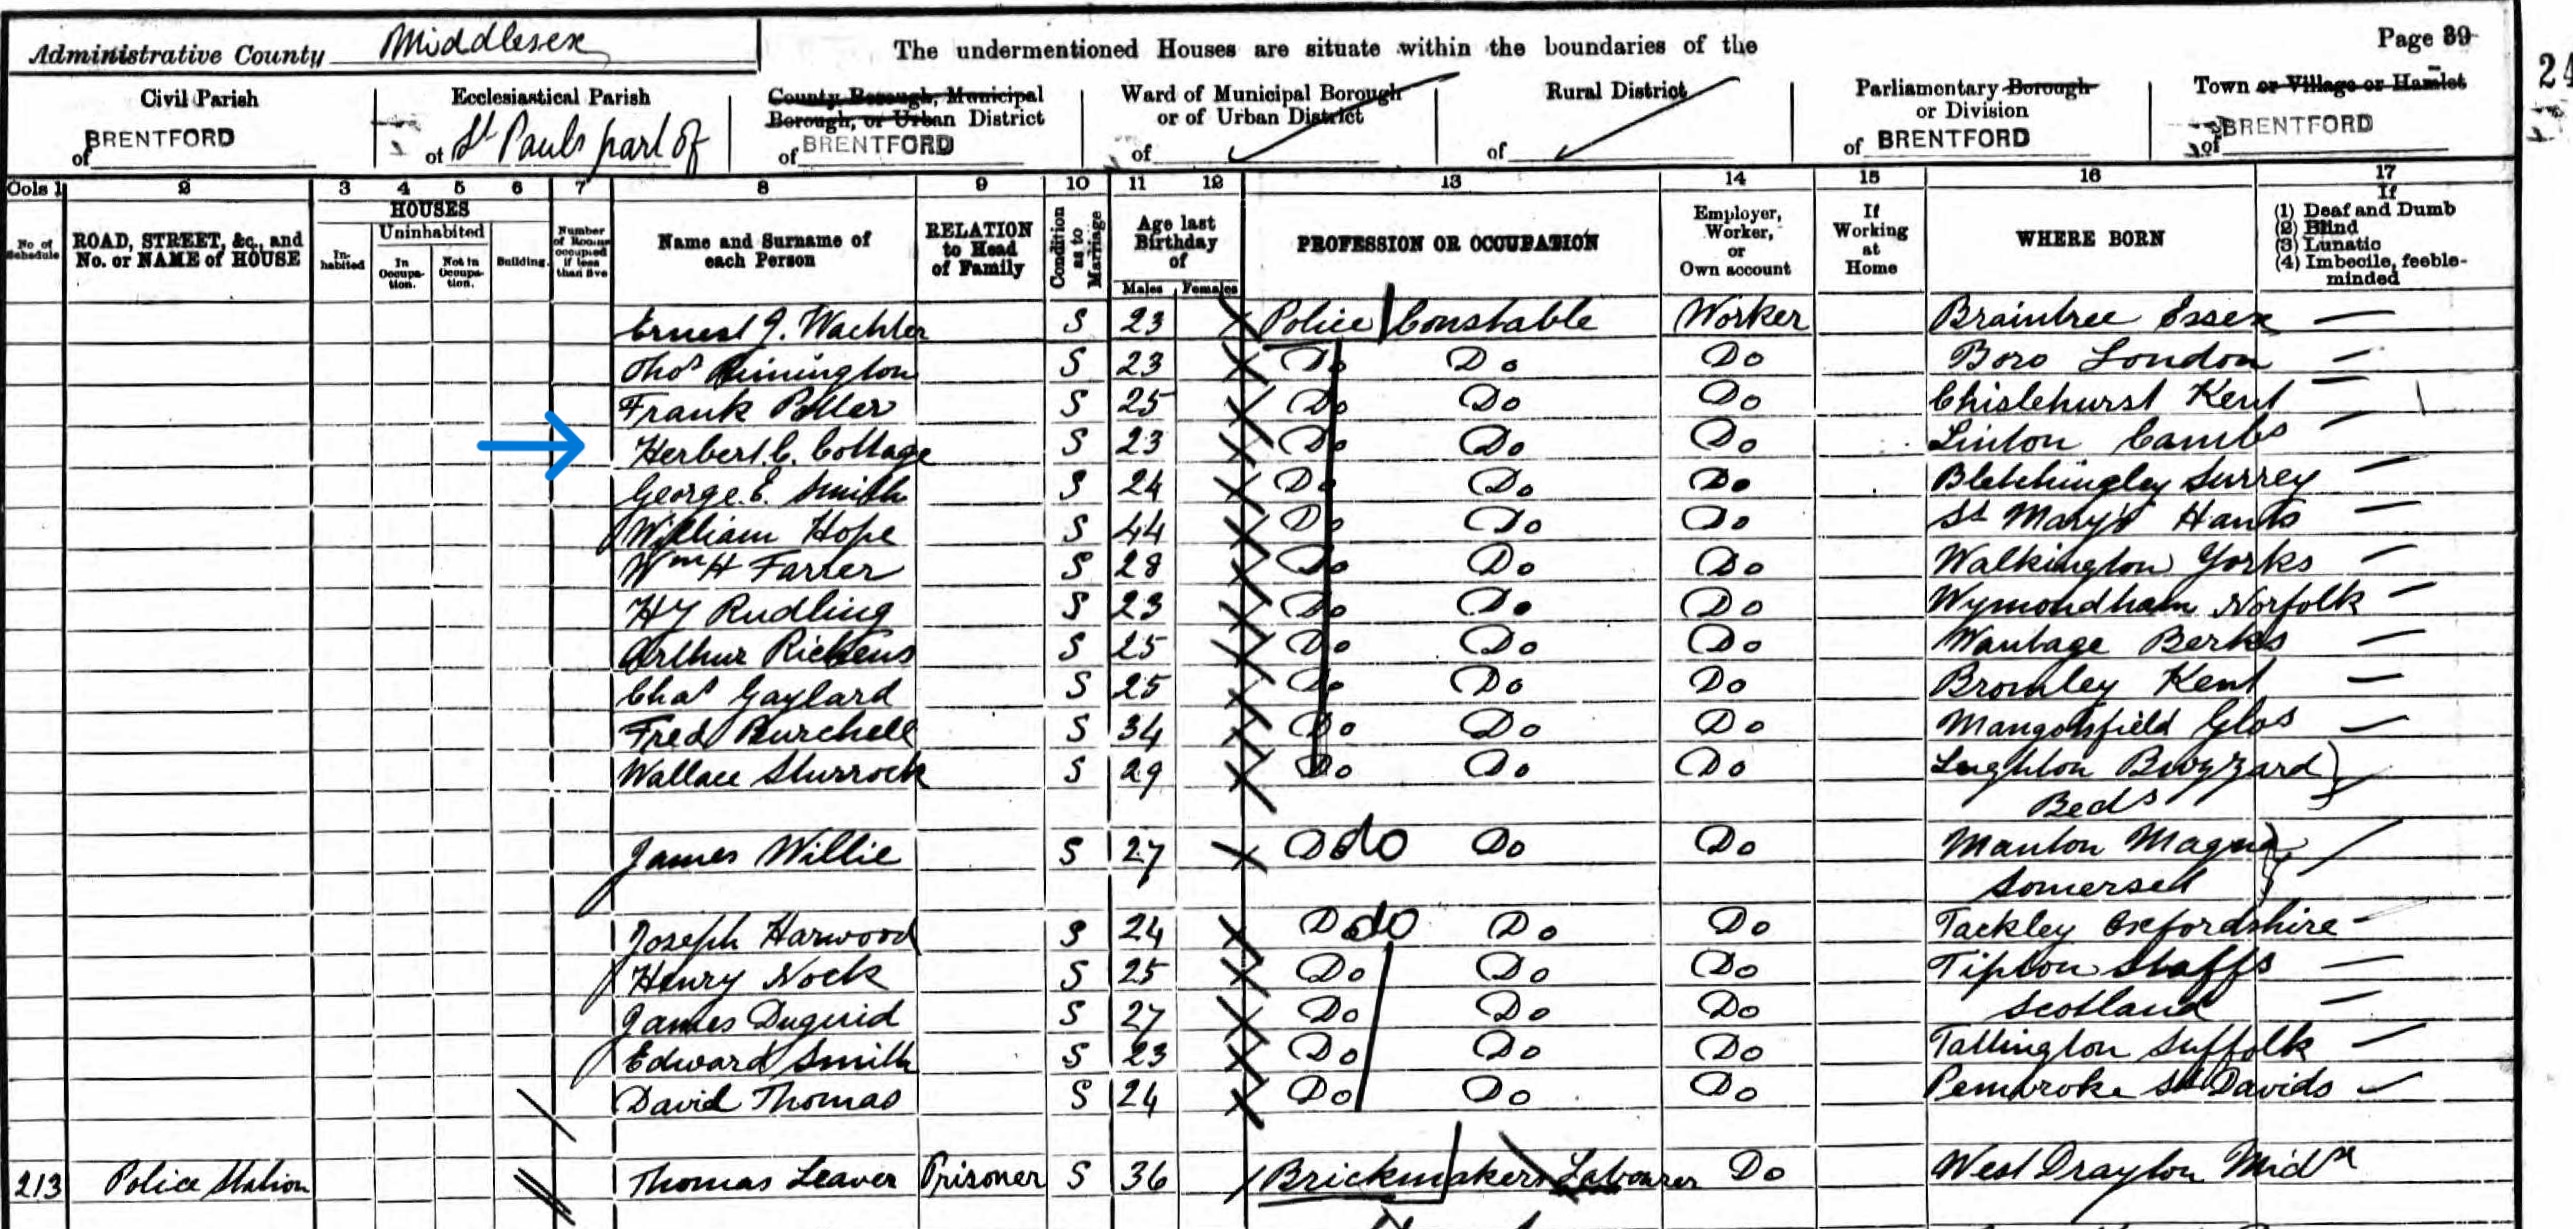 Administrative County Middlesex
The undermentioned Houses are situate within the boundaries of the
Page 39
24
Civil Parish of BRENTFORD
Ecclesiastical Parish of St Pauls part of
County Borough, Municipal Borough, or Urban District of BRENTFORD
Ward of Municipal Borough or of Urban District of
Rural District of
Parliamentary Borough or Division of BRENTFORD
Town or Village or Hamlet of BRENTFORD
Cols 1 2 3 4 5 6 7 8 9 10 11 12 13 14 15 16 17
No of Schedule
ROAD, STREET, &c., and No. or NAME of HOUSE
HOUSES
Inhabited
Uninhabited
In Occupation.
Not in Occupation.
Building.
Number of Rooms occupied if less than five
Name and Surname of each Person
RELATION to Head of Family
Condition as to Marriage
Age last Birthday of
Males Females
PROFESSION OR OCCUPATION
Employer, Worker, or Own account
If Working at Home
WHERE BORN
If
(1) Deaf and Dumb
(2) Blind
(3) Lunatic
(4) Imbecile, feeble-minded
Ernest J. Wachter S 23 Police Constable Worker Braintree Essex
Thos Rinington S 23 Do Do Do Boro London
Frank Potter S 25 Do Do Do Chislehurst Kent
Herbert C. Cottage S 23 Do Do Do Linton Cambs
George E. Smith S 24 Do Do Do Bletchingley Surrey
William Hope S 44 Do Do Do St Mary's Hants
Wm H Farrer S 28 Do Do Do Walkington Yorks
Hy Rudling S 23 Do Do Do Wymondham Norfolk
Arthur Rickens S 25 Do Do Do Wantage Berks
Chas Gaylard S 25 Do Do Do Bromley Kent
Fred Burchell S 34 Do Do Do Mangotsfield Glos
Wallace Sturrock S 29 Do Do Do Leighton Buzzard
Beds
James Willie S 27 Do do Do Do Manton Magna
Somerset
Joseph Harwood S 24 Do do Do Do Tackley Oxfordshire
Henry Nock S 25 Do Do Do Tipton Staffs
James Duguid S 27 Do Do Do Scotland
Edward Smith S 23 Do Do Do Tallington Suffolk
David Thomas S 24 Do Do Do Pembroke St Davids
213 Police Station Thomas Leaver Prisoner S 36 Brickmakers Labourer Do West Drayton Midx